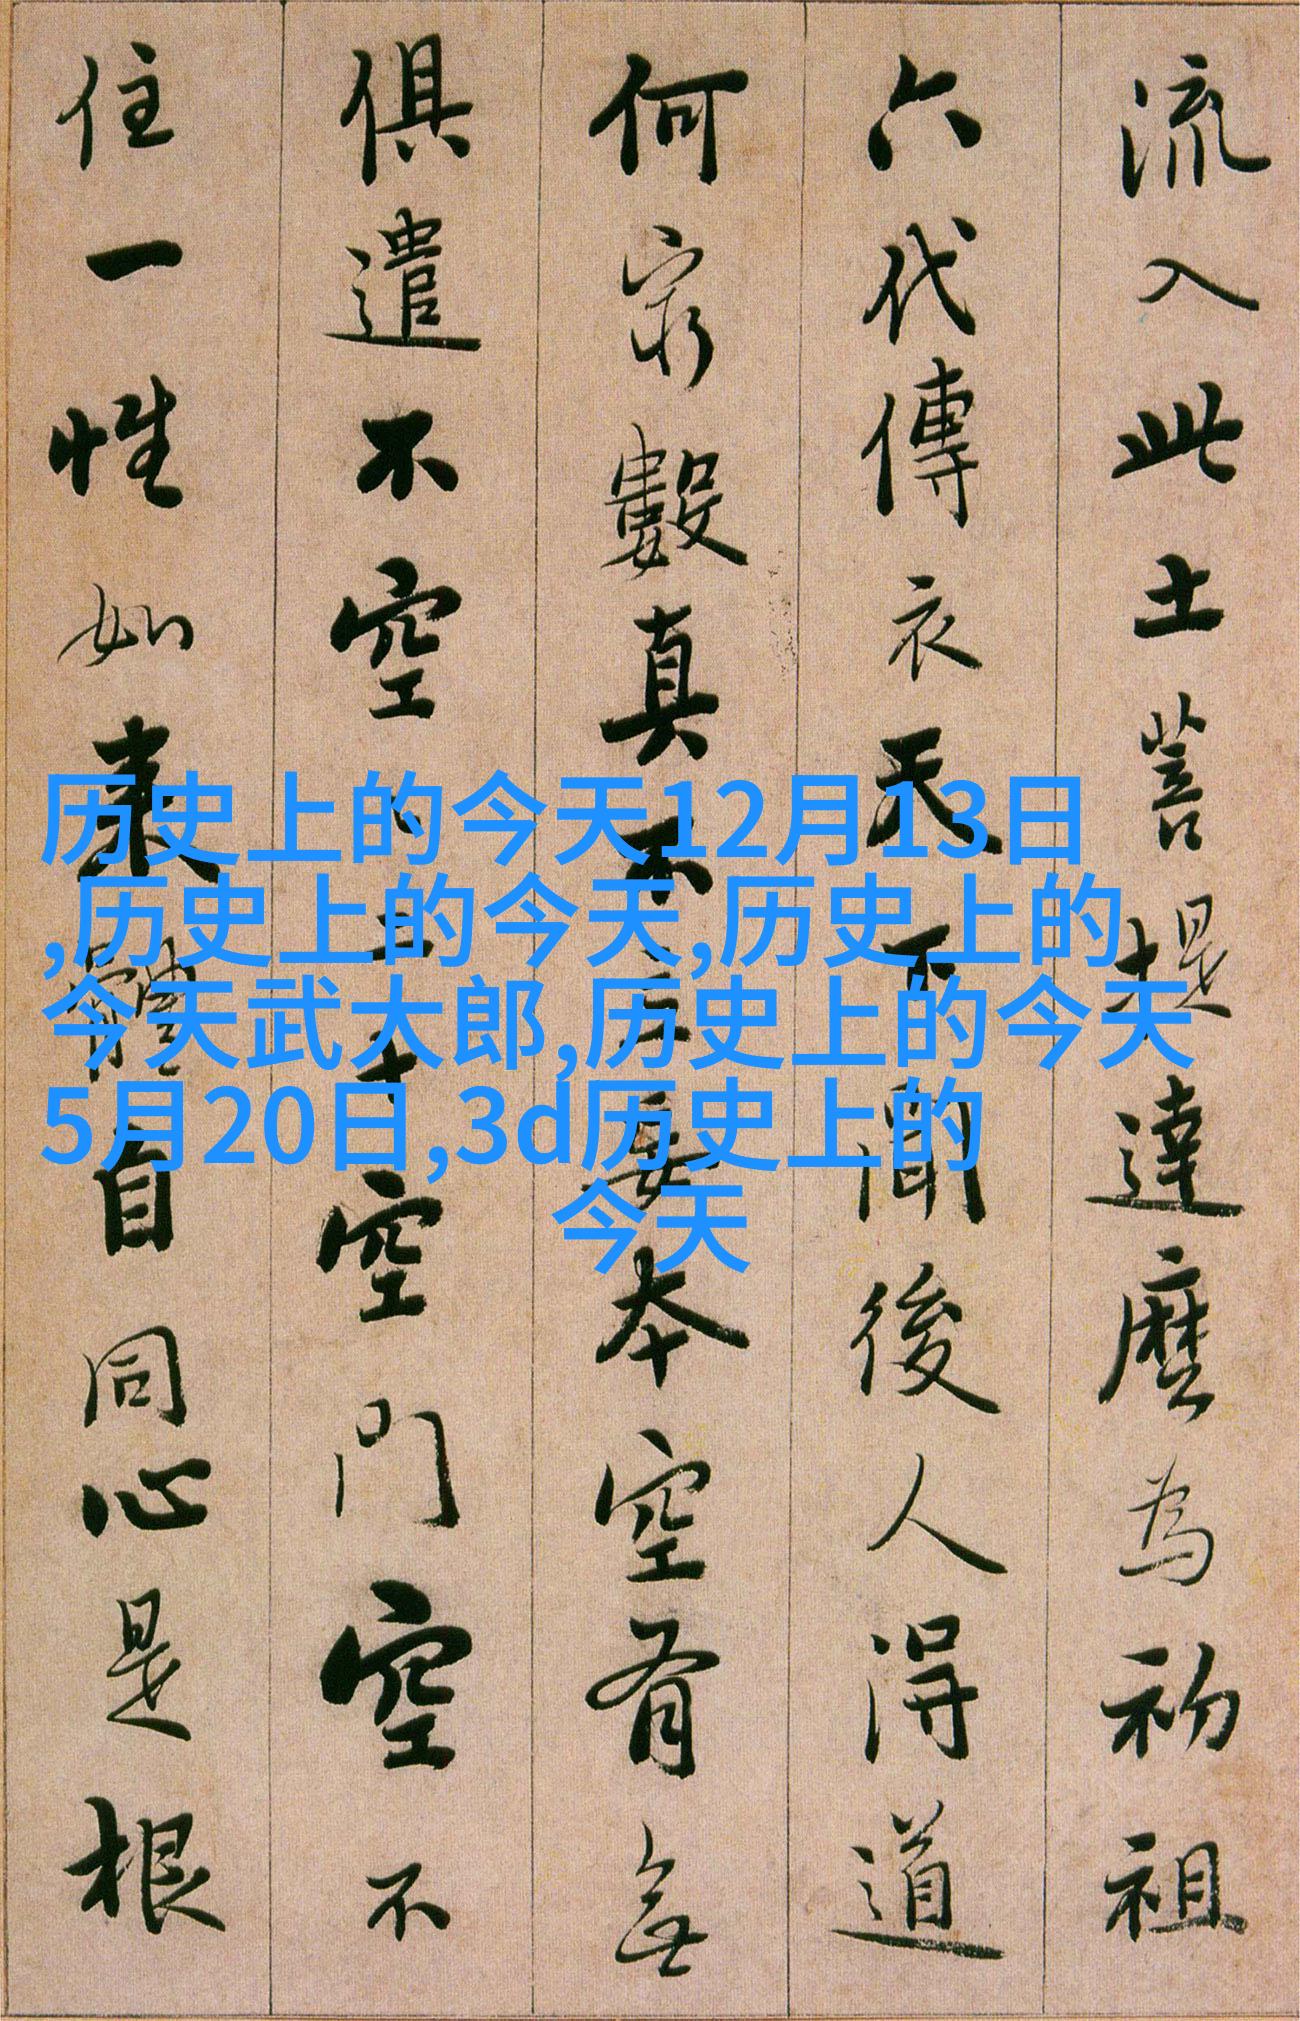 流入此土菩提達麼為初祖
六代傳衣天下聞後人得道
何窮數真不立妄本空有無
俱遣不空二十空門空不
住一性如來體自同心是根
历史上的今天12月13日
,历史上的今天,历史上的
今天武大郎,历史上的今天
5月20日,3d历史上的
今天